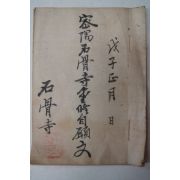 戊子正月 日
密陽石骨寺重修自願文
石骨寺